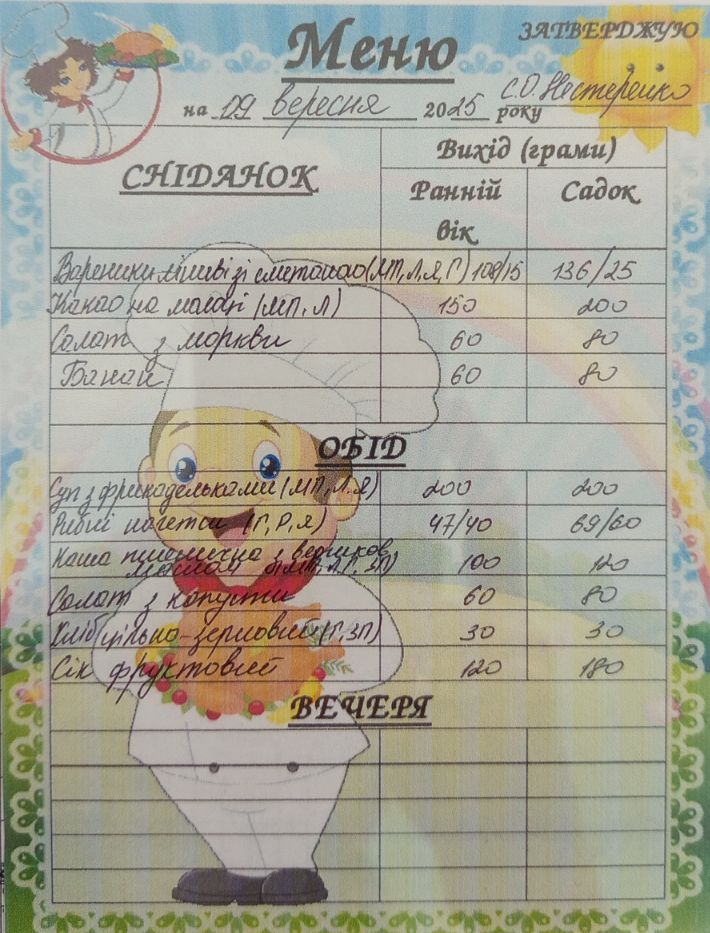 Меню
ЗАТВЕРДЖУЮ
С.О. Нестеренко
на 09 вересня 2025 року
СНІДАНОК
Вихід (грами)
Ранній вік
Садок
Вареники ліниві зі сметаною (МП, Л, Я, Г) 108/15 136/25
Какао на молоці (МП, Л) 150 200
Салат з моркви 60 80
Банан 60 80
ОБІД
Суп з фрикадельками (МП, Л. Я) 200 200
Рибні нагетси (Г, Р, Я) 47/40 69/60
Каша пшенична з вершков
маслом (МП, Л, Г, ЗП) 100 120
Салат з капусти 60 80
Хліб цільно-зерновий (Г, ЗП) 30 30
Сік фруктовий 120 180
ВЕЧЕРЯ